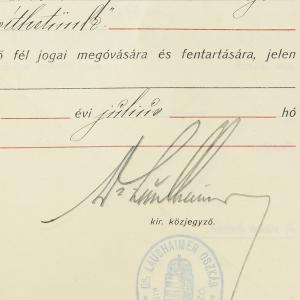 ő fél jogai megóvására és fentartására, jelen
évi július hó
Dr Laubhaimer
kir. közjegyző.
DR. LAUBHAIMER OSZKÁR